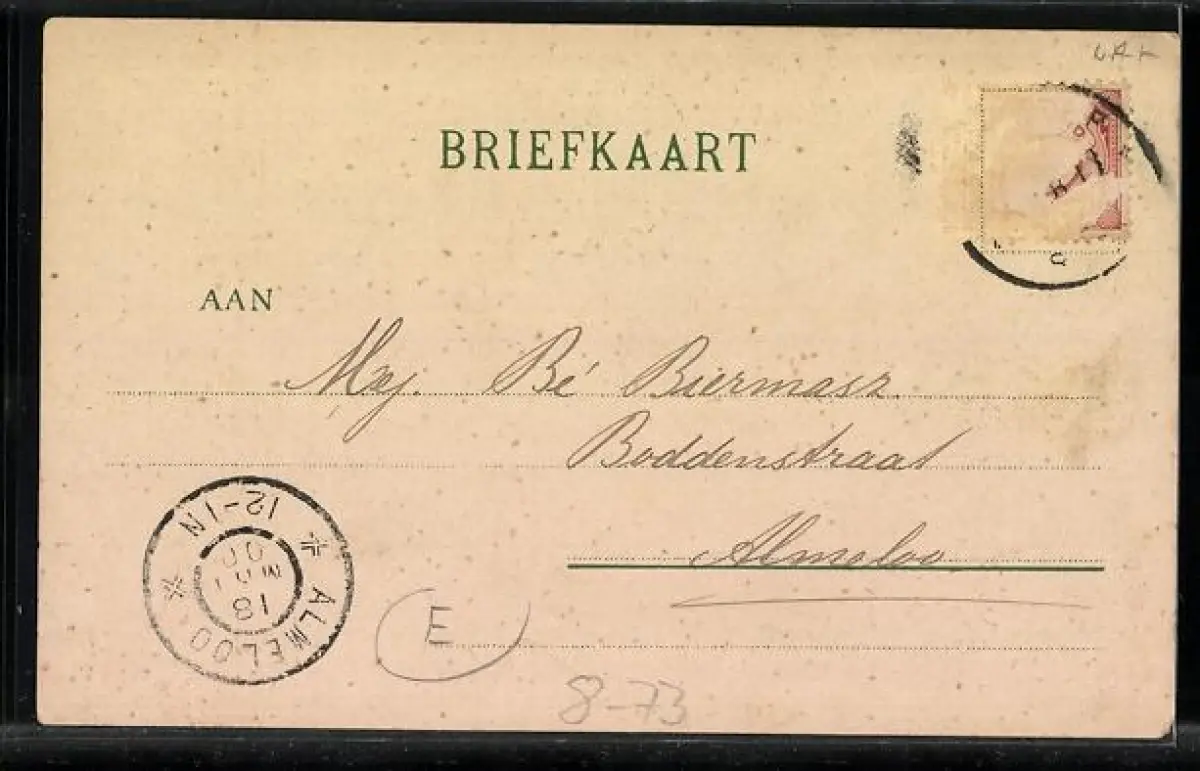 BRIEFKAART
AAN
Mej. Bé Biermasz
Boddenstraat
Almeloo
* ALMELOO * 12-1N
18
MRT
00
E
8-73